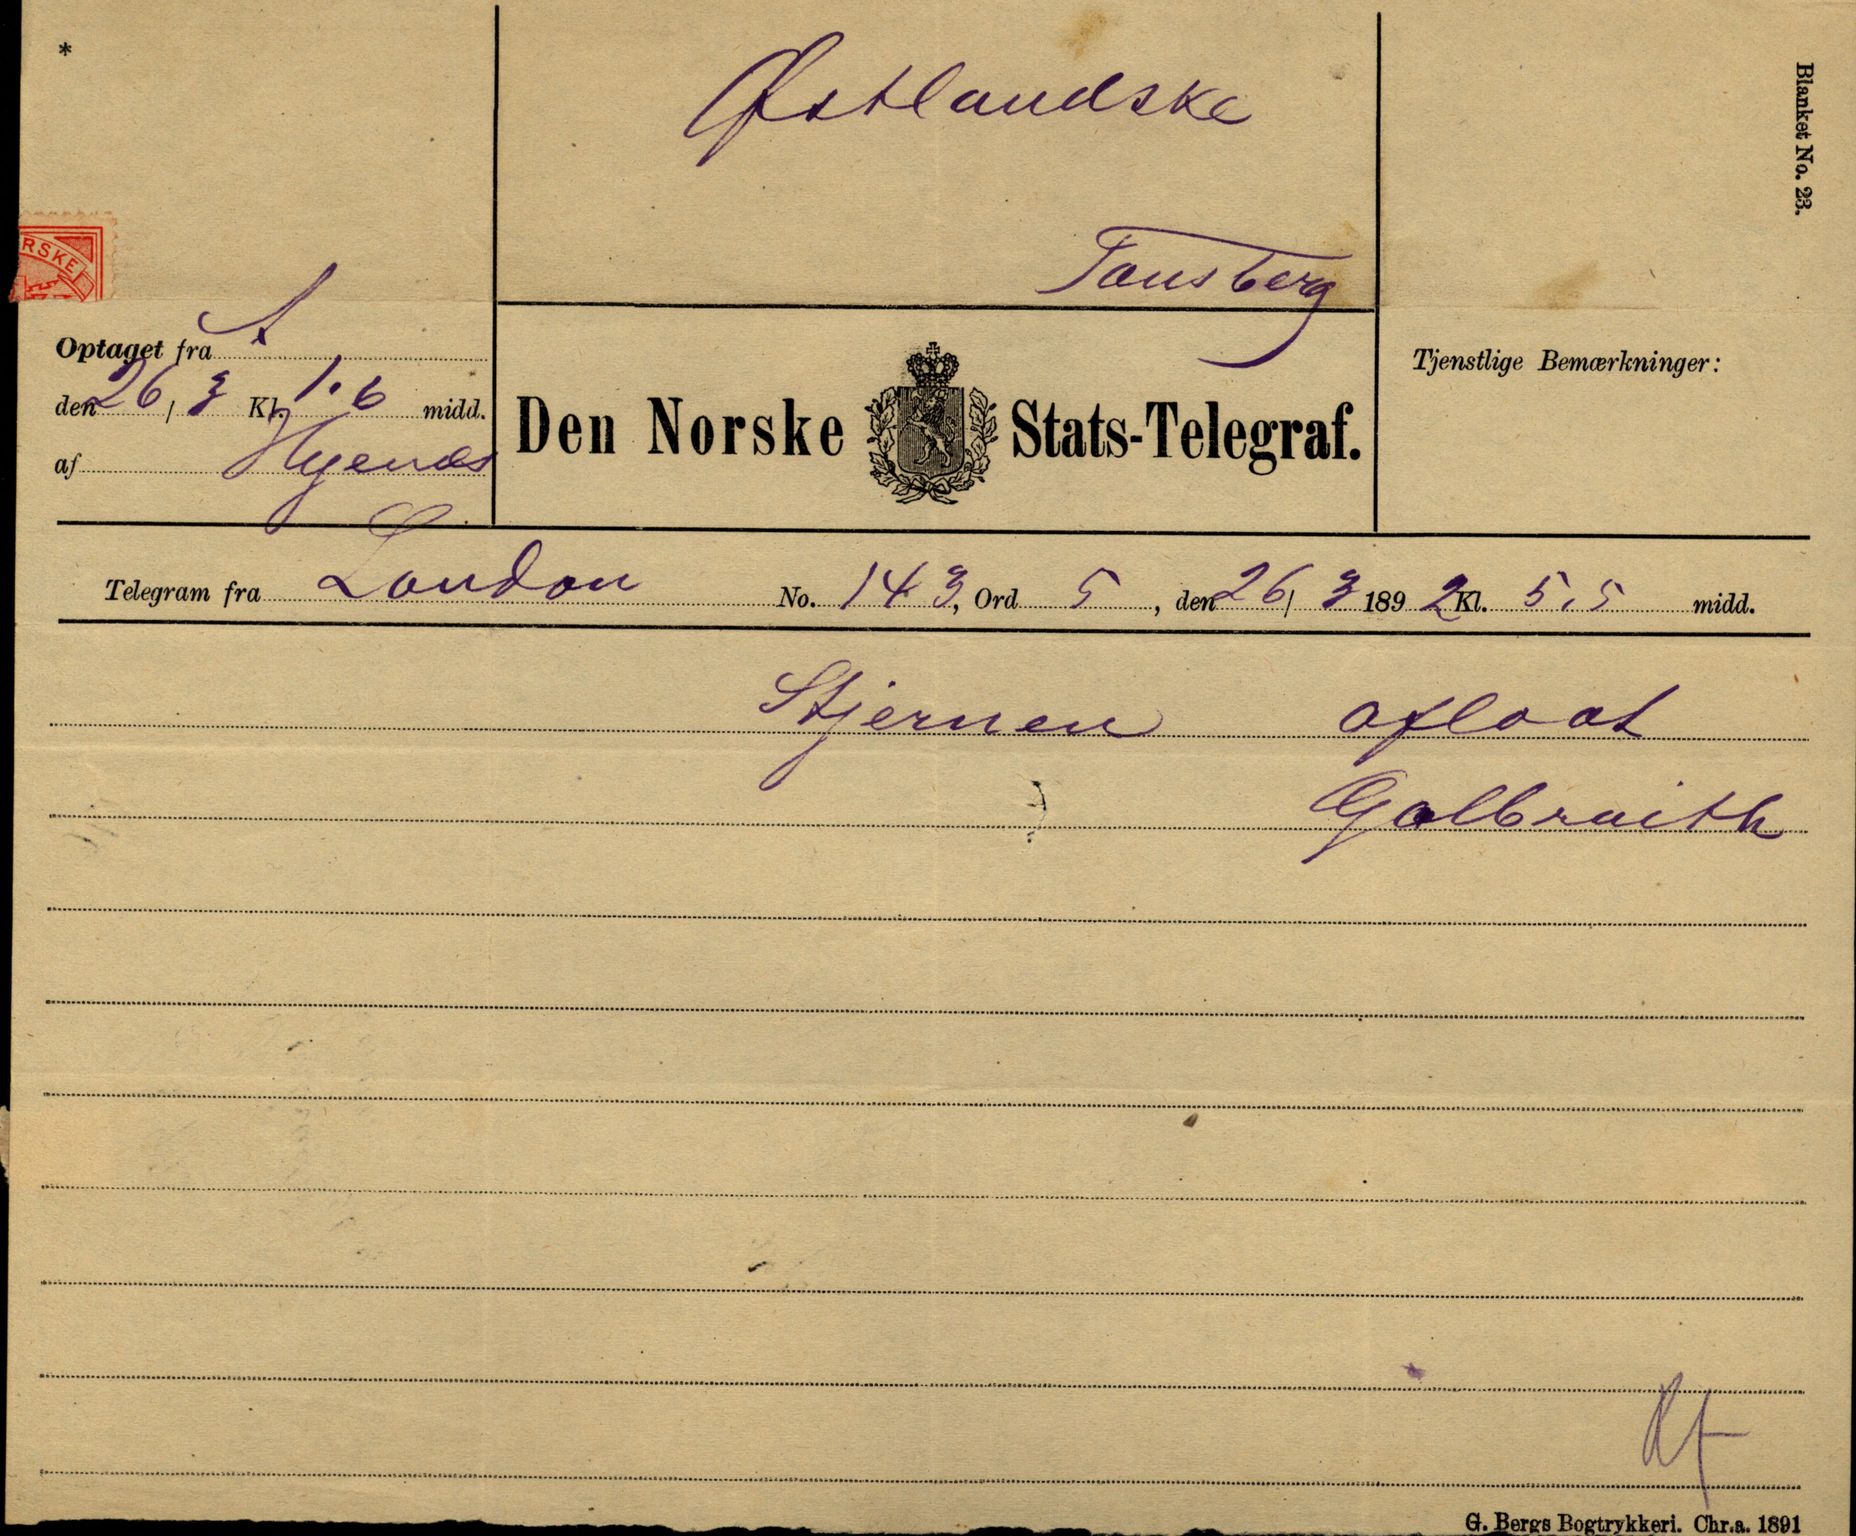 *
Østlandske
Blanket No. 23.
Tønsberg
RSKE
Optaget fra A
den 26/3 Kl. 1.6 midd.
af
Den Norske Stats-Telegraf.
Tjenstlige Bemærkninger:
Telegram fra London No. 143, Ord 5, den 26/3 1892 Kl. 5,5 midd.
Stjernen afloat
Galbraith
G. Bergs Bogtrykkeri. Chr.a. 1891